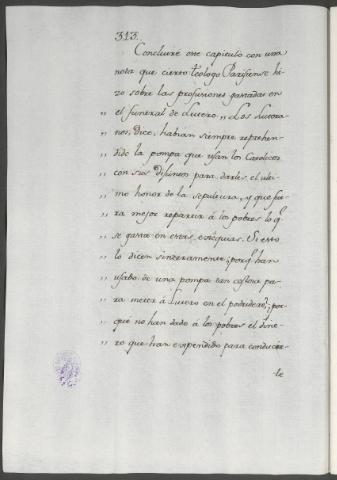 313.
Concluiré este capitulo con una
nota que cierto Teologo Parisiense hi-
zo sobre las profusiones gastadas en
,, el funeral de Lutero ,, Los Lutera-
,, nos, dice, habian siempre reprehen-
,, dido la pompa que usan los Catolicos
,, con sus Difuntos para darles el ulti-
,, mo honor de la sepultura, y que fue-
,, ra mejor repartir á los pobres lo q.e
,, se gasta en estas exêquias. Si esto
,, lo dicen sinceramente, porq.e han
,, usado de una pompa tan costosa pa-
,, ra meter á Lutero en el podridero?, por-
,, qué no han dado á los pobres el dine-
,, ro que han expendido para conducir-
le